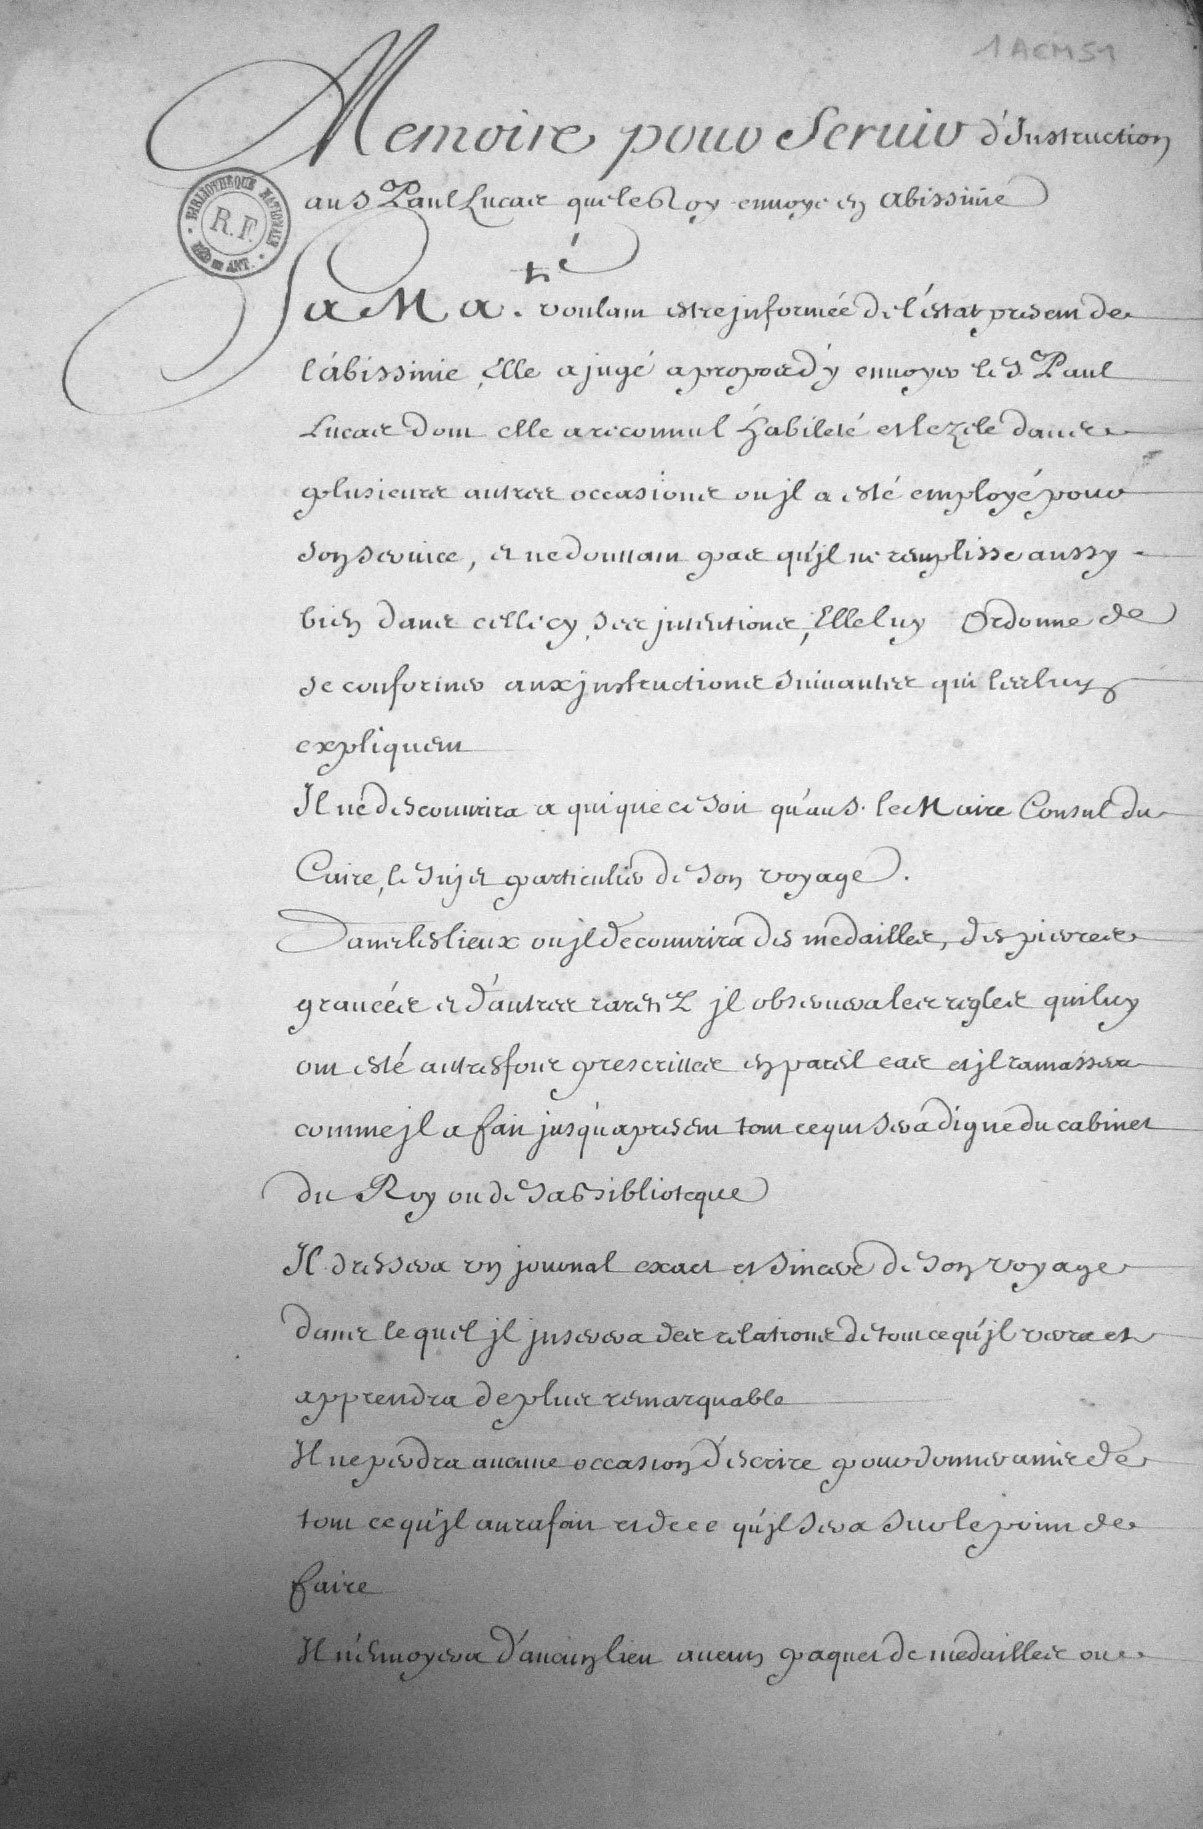 1 ACM51
Memoire pour Seruir d'Instruction
au S. Paul Lucas que le Roy enuoye en Abissinie
BIBLIOTHEQUE NATIONALE
R.F.
MED. ET ANT.
Sa Ma.té voulant estre jnformée de l'éstat present de
l'âbissinie, Elle a jugé a propos d'y enuoyer le S. Paul
Lucas dont elle a reconnu l'habileté et le zele dans
plusieurs autres occasions ou jl a esté employé pour
son seruice, et ne doutant pas qu'jl ne remplisse aussy
bien dans celle cy ses jntentions, Elle luy Ordonne de
se conformer aux jnstructions suiuantes qui les luy
expliquent
Il ne descouurira a qui que ce soit qu'au S. le Maire Consul du
Caire, le sujet particulier de son voyage.
Dans les lieux ou jl decouurira des medailles, des pierres
grauées et d'autres raretez jl obseruera les regles qui luy
ont esté autresfois prescrittes en pareil cas et jl ramassera
comme jl a fait jusqu'a present tout ce qui sera digne du cabinet
du Roy ou de sa Biblioteque
Il dressera vn journal exact et sincere de son voyage
dans le quel jl jnserera des relations de tout ce qu'jl verra et
apprendra de plus remarquable
Il ne perdra aucune occasion d'escrire pour donner auis de
tout ce qu'jl aura fait et de ce qu'jl sera sur le point de
faire
Il n'enuoyera d'aucun lieu aucun paquet de medailles ou